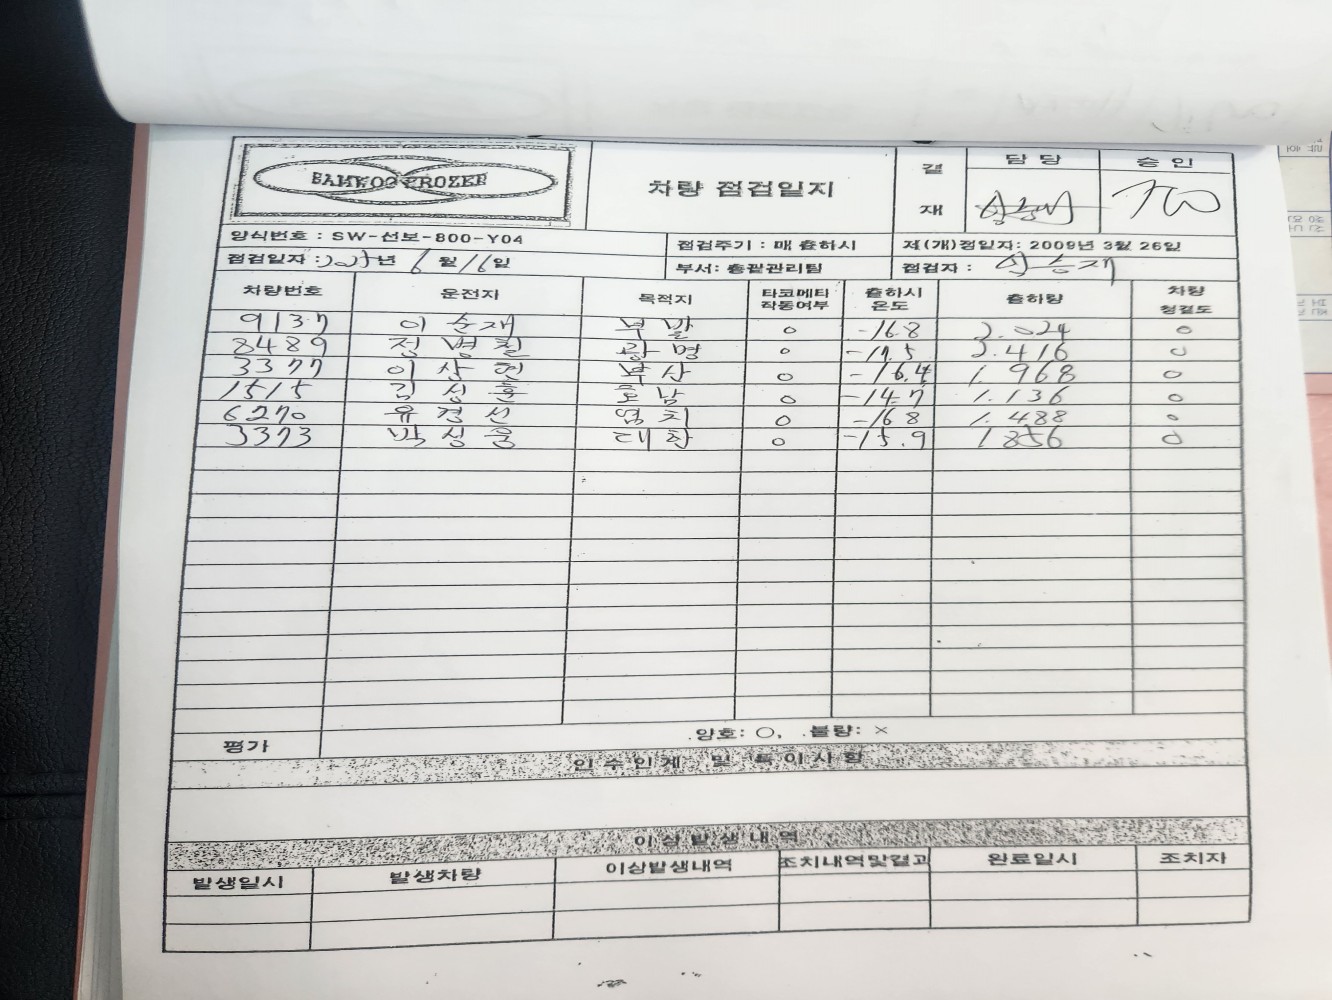 SAMWOO FROZEN
차량 점검일지
결재 담당 승인
양식번호 : SW-선보-800-Y04 점검주기 : 매 출하시 제(개)정일자: 2009년 3월 26일
점검일자 : 년 6월 16일 부서: 총괄관리팀 점검자 :
차량번호 운전자 목적지 타코메타 작동여부 출하시 온도 출하량 차량 청결도
9137 이순재 부발 ○ -16.8 3.024 ○
8489 정병철 광명 ○ -17.5 3.416 ○
3377 이상현 부산 ○ -16.4 1.968 ○
1515 김성훈 호남 ○ -14.7 1.136 ○
6270 유경선 염치 ○ -16.8 1.488 ○
3373 박성웅 ○ -15.9 1.856 ○
평가 양호: ○, 불량: ×
인수인계 및 특이사항
이상발생내역
발생일시 발생차량 이상발생내역 조치내역및결과 완료일시 조치자